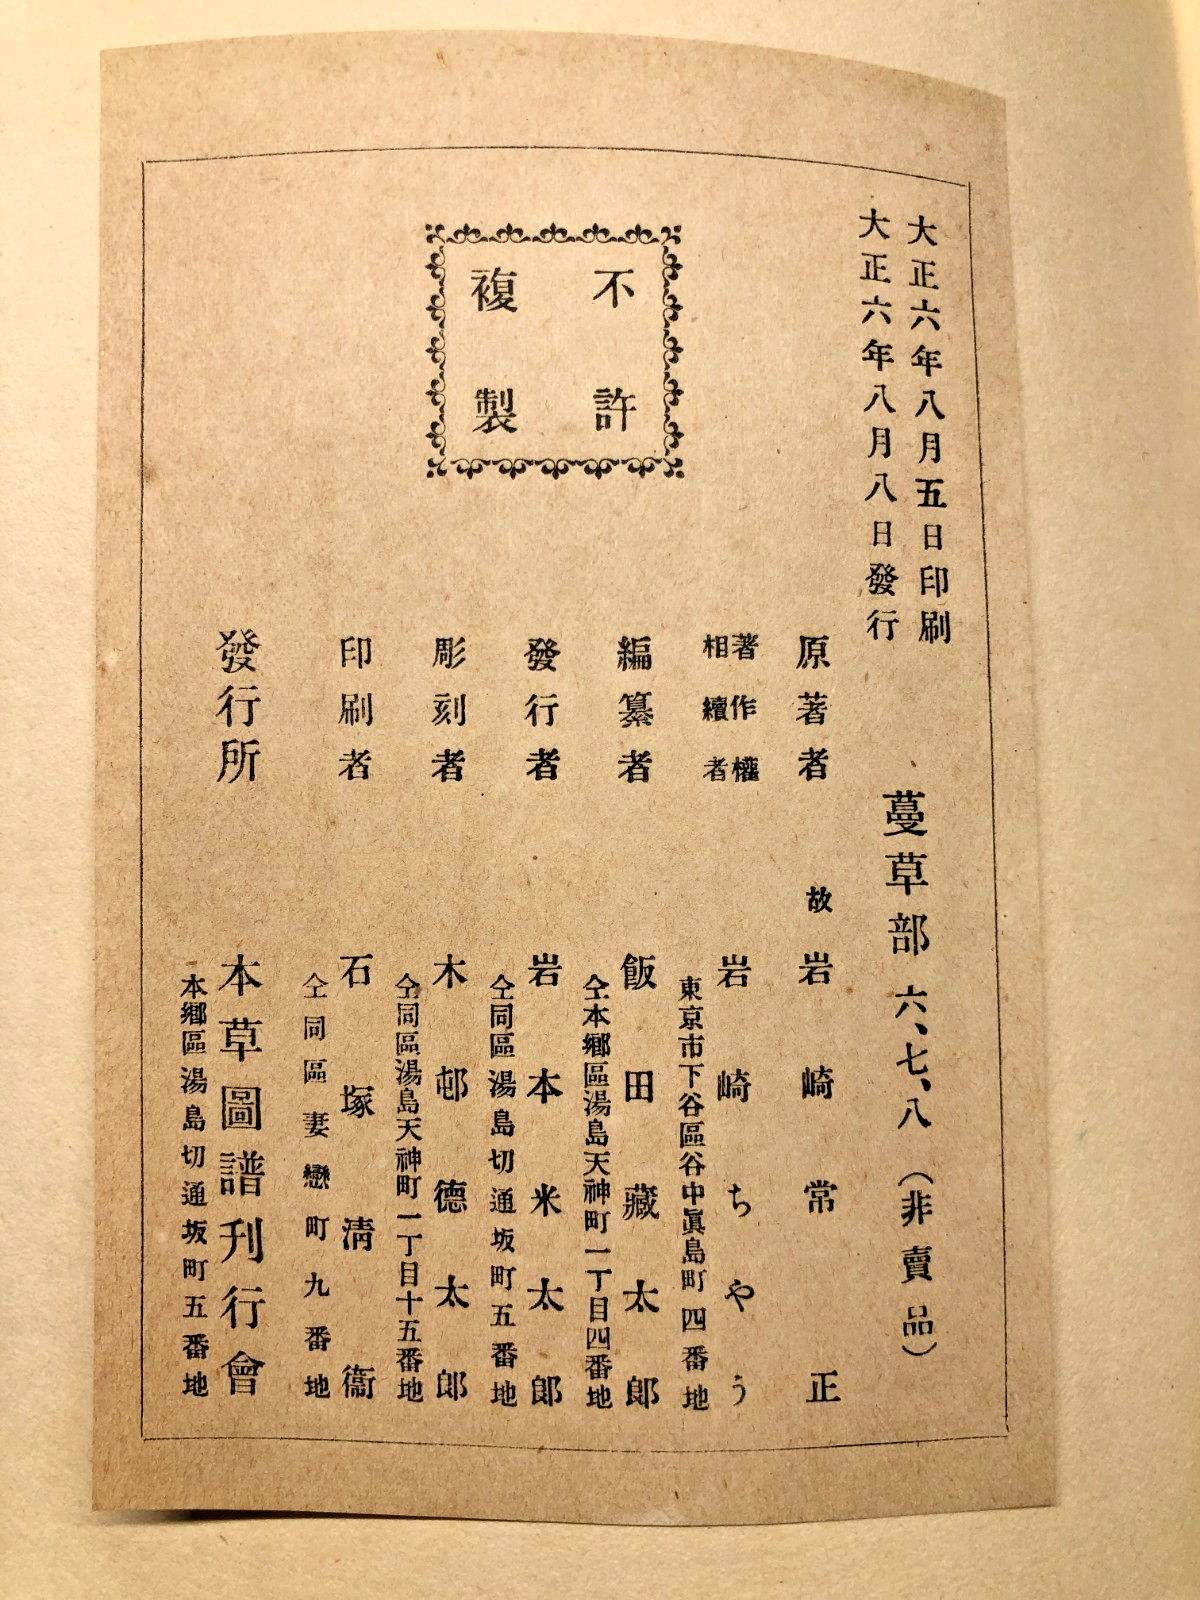 大正六年八月五日印刷
大正六年八月八日發行
蔓草部 六、七、八 (非賣品)
不許
複製
原著者 故岩崎常正
著作權
相續者
岩崎ちやう
東京市下谷區谷中眞島町四番地
編纂者 飯田藏太郎
仝本鄕區湯島天神町一丁目四番地
發行者 岩本米太郎
仝同區湯島切通坂町五番地
彫刻者 木邨德太郎
仝同區湯島天神町一丁目十五番地
印刷者 石塚淸衞
仝同區妻戀町九番地
發行所 本草圖譜刊行會
本鄕區湯島切通坂町五番地